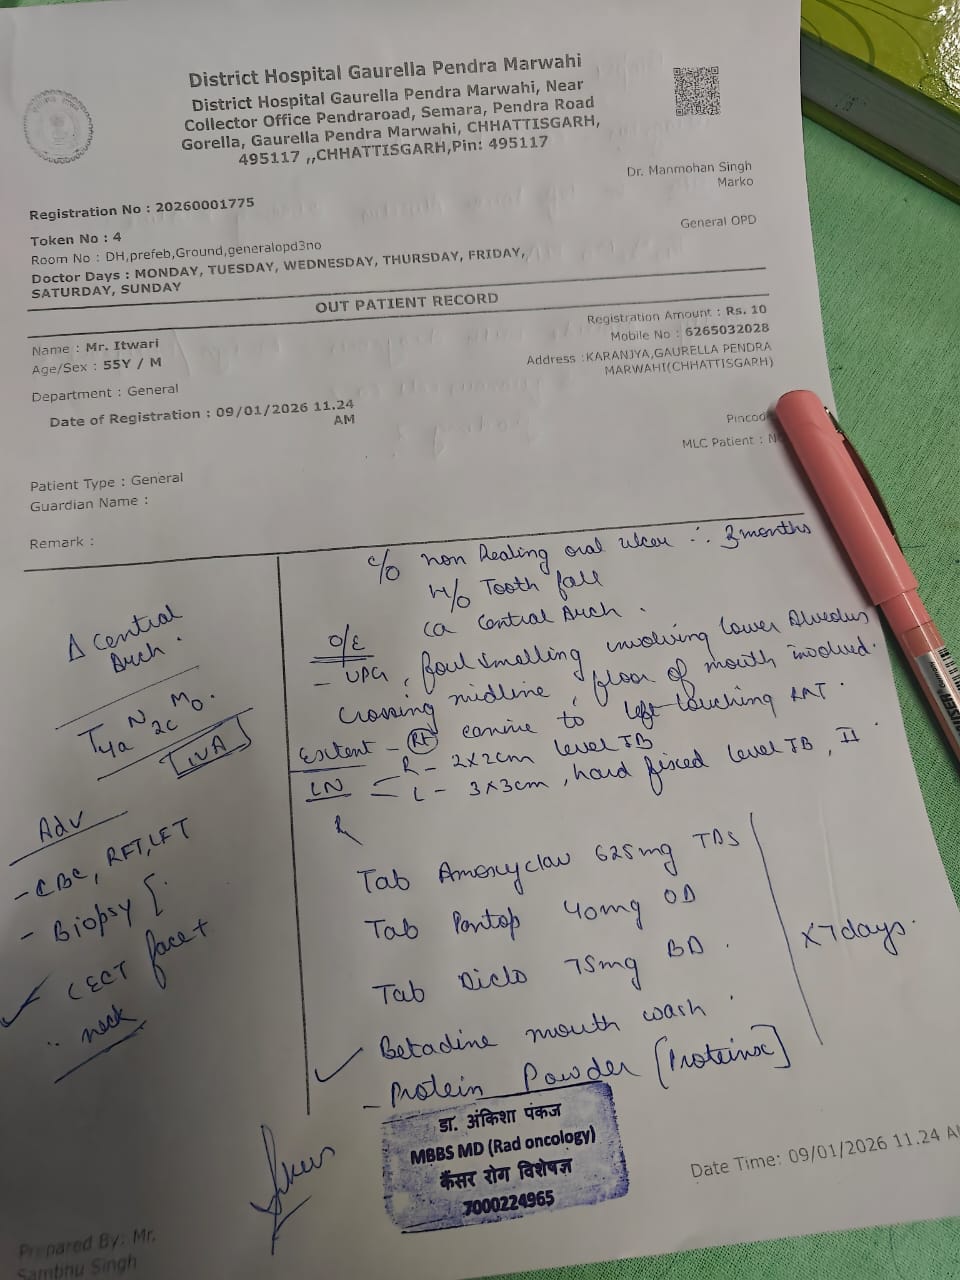 District Hospital Gaurella Pendra Marwahi
District Hospital Gaurella Pendra Marwahi, Near
Collector Office Pendraroad, Semara, Pendra Road
Gorella, Gaurella Pendra Marwahi, CHHATTISGARH,
495117 ,,CHHATTISGARH,Pin: 495117
Dr. Manmohan Singh
Marko
Registration No : 20260001775
Token No : 4
General OPD
Room No : DH,prefeb,Ground,generalopd3no
Doctor Days : MONDAY, TUESDAY, WEDNESDAY, THURSDAY, FRIDAY,
SATURDAY, SUNDAY
OUT PATIENT RECORD
Registration Amount : Rs. 10
Name : Mr. Itwari
Mobile No : 6265032028
Age/Sex : 55Y / M
Address :KARANJYA,GAURELLA PENDRA
MARWAHI(CHHATTISGARH)
Department : General
Date of Registration : 09/01/2026 11.24
AM
MLC Patient :
Patient Type : General
Guardian Name :
Remark :
Δ Central
Arch
T4a N2c M0.
IVA
Adv
- CBC, RFT, LFT
- Biopsy [
CECT face +
neck
c/o non healing oral ulcer ∴ 3 months
H/o Tooth fall
Ca Central Arch .
O/E
- UPG, foul smelling involving lower Alveolus
crossing midline, floor of mouth involved.
Extent - Rt canine to left touching RMT.
LN R - 2x2cm level IB
L - 3x3cm, hard fixed level IB, II
Tab Amoxyclav 625mg TDS
Tab Pantop 40mg OD
Tab Diclo 75mg BD .
x 7 days.
Betadine mouth wash
- Protein Powder [Proteinx]
डा. अंकिशा पंकज
MBBS MD (Rad oncology)
कैंसर रोग विशेषज्ञ
7000224965
Date Time: 09/01/2026 11.24
Prepared By: Mr.
Sambhu Singh